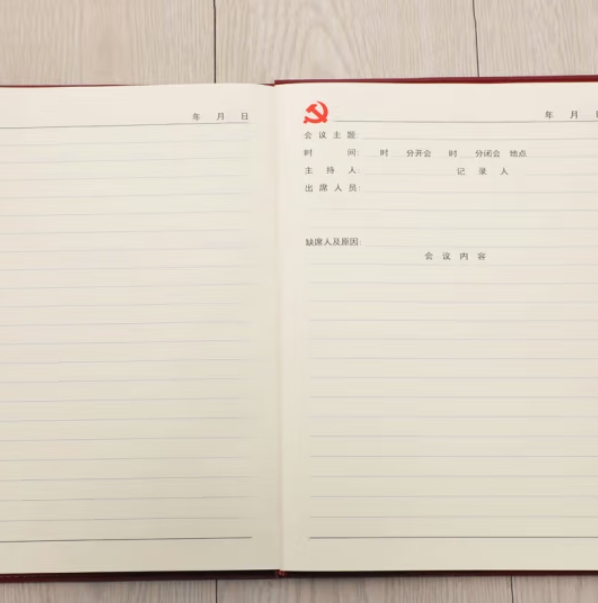 年 月 日
年 月 日
会 议 主 题:
时 间: 时 分开会 时 分闭会 地点
主 持 人: 记 录 人
出 席 人 员:
缺席人及原因:
会 议 内 容